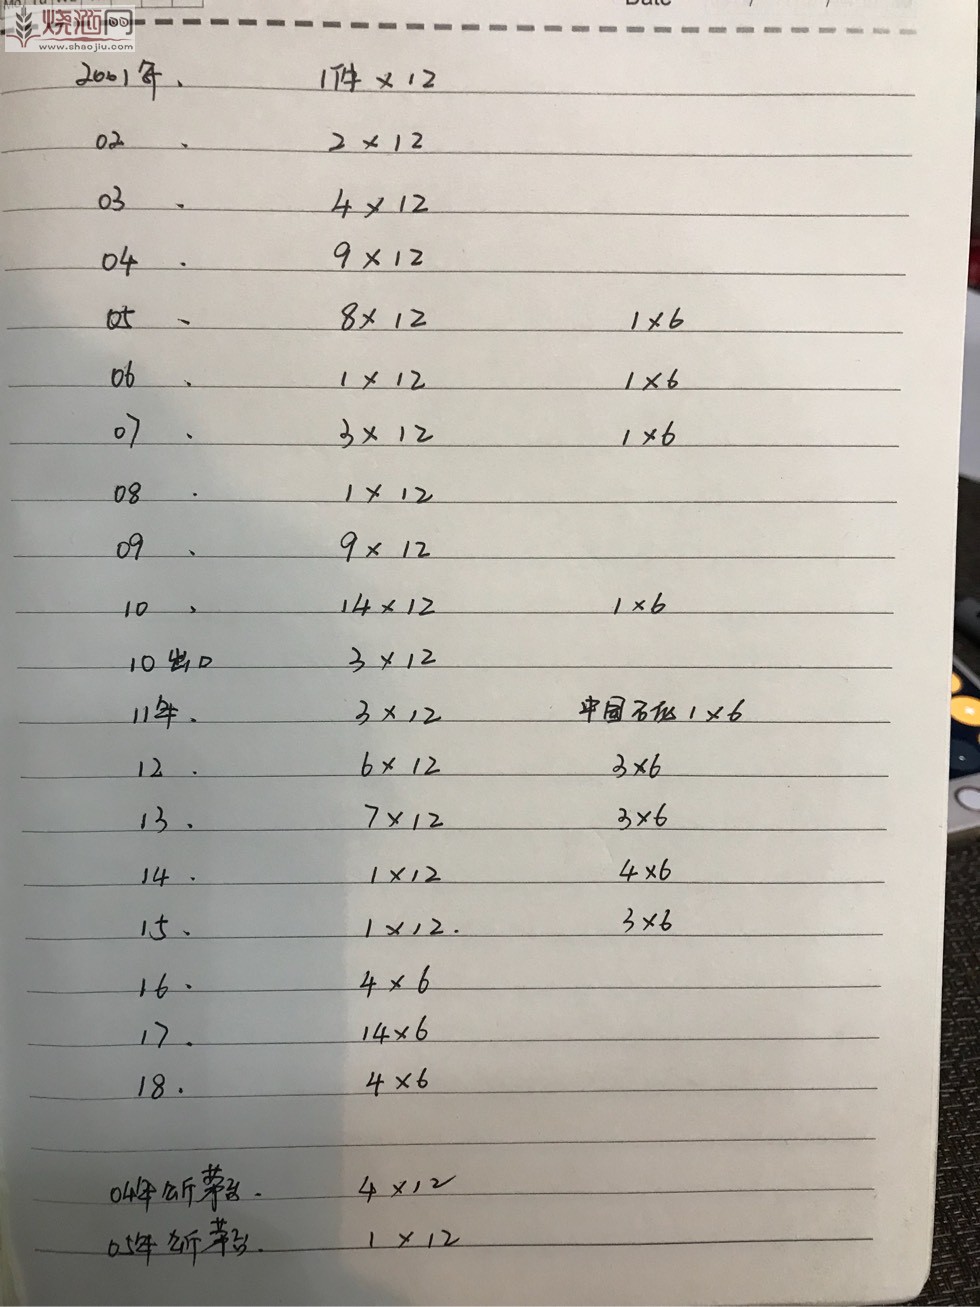 烧酒网
www.shaojiu.com
Date
2001年、 1件×12
02 、 2×12
03 、 4×12
04 、 9×12
05 、 8×12 1×6
06 、 1×12 1×6
07 、 3×12 1×6
08 . 1×12
09 、 9×12
10 、 14×12 1×6
10出口 3×12
11年. 3×12 中国 1×6
12 . 6×12 3×6
13 、 7×12 3×6
14 . 1×12 4×6
15 、 1×12. 3×6
16 . 4×6
17 . 14×6
18 . 4×6
04年 茅台. 4×12
05年 茅台. 1×12